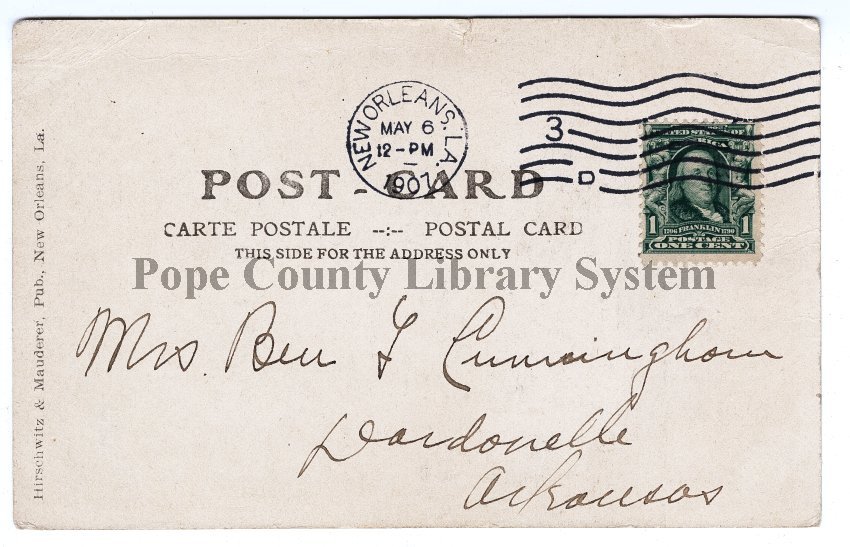 NEW ORLEANS. LA.
MAY 6
12-PM
1907
3
D
UNITED STATES OF AMERICA
1 1706 FRANKLIN 1790 1
POSTAGE
ONE CENT
POST-CARD
CARTE POSTALE --:-- POSTAL CARD
THIS SIDE FOR THE ADDRESS ONLY
Pope County Library System
Mrs. Ben F Cunningham
Dardanelle
Arkansas
Hirschwitz & Mauderer, Pub., New Orleans, La.